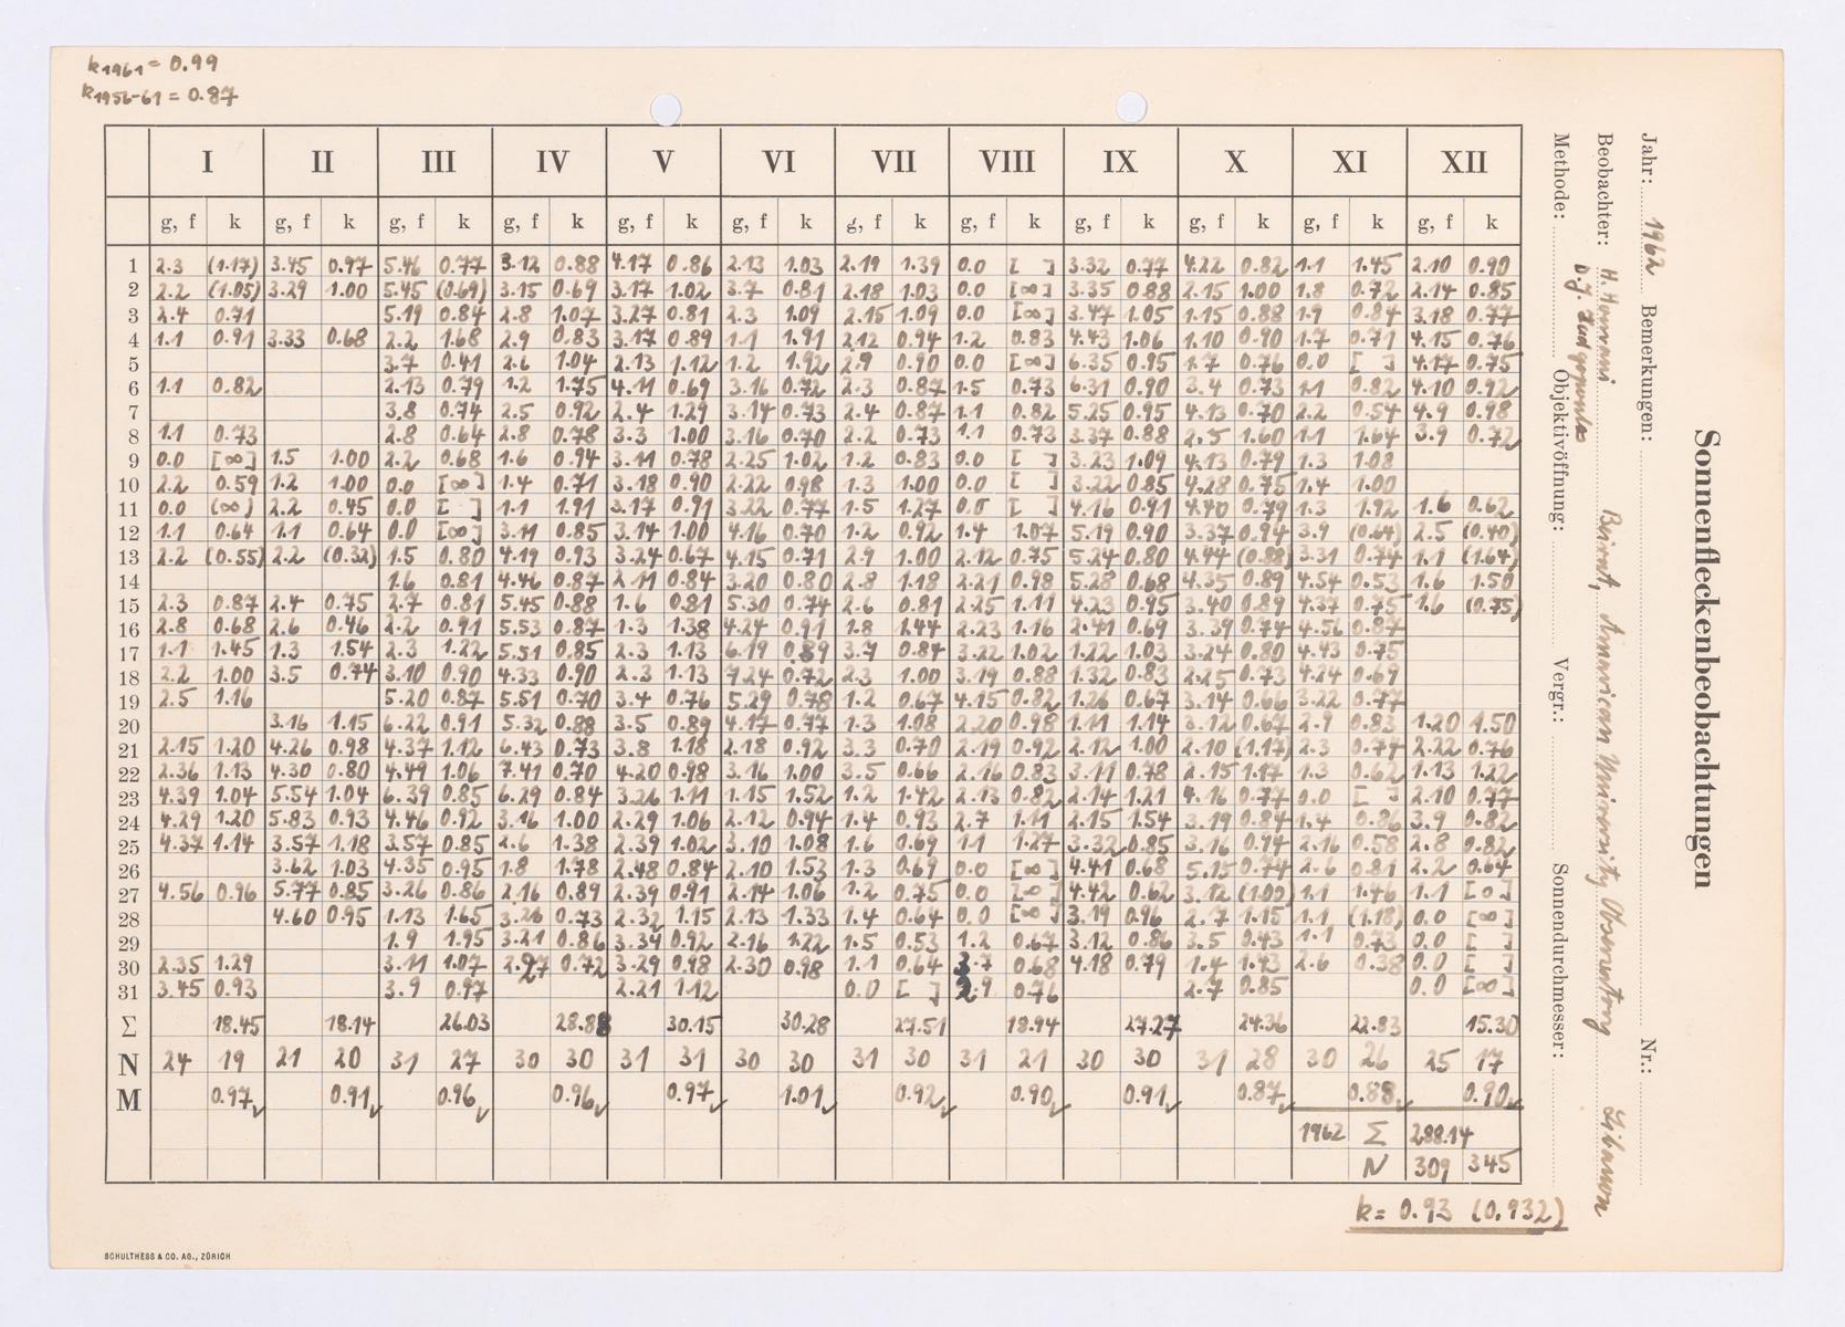 k1961 = 0.99
k1956-61 = 0.87
I II III IV V VI VII VIII IX X XI XII
g, f k g, f k g, f k g, f k g, f k g, f k g, f k g, f k g, f k g, f k g, f k g, f k
1 2.3 (1.17) 3.45 0.97 5.46 0.77 3.12 0.88 4.17 0.86 2.13 1.03 2.19 1.39 0.0 [ ] 3.32 0.77 4.22 0.82 1.1 1.45 2.10 0.90
2 2.2 (1.05) 3.29 1.00 5.45 (0.69) 3.15 0.69 3.17 1.02 3.7 0.81 2.18 1.03 0.0 [∞] 3.35 0.88 2.15 1.00 1.8 0.72 2.14 0.85
3 2.4 0.71 5.19 0.84 2.8 1.07 3.27 0.81 2.3 1.09 2.15 1.09 0.0 [∞] 3.47 1.05 1.15 0.88 1.9 0.84 3.18 0.77
4 1.1 0.91 3.33 0.68 2.2 1.68 2.9 0.83 3.17 0.89 1.1 1.91 2.12 0.94 1.2 0.83 4.43 1.06 1.10 0.90 1.7 0.71 4.15 0.76
5 3.7 0.41 2.6 1.04 2.13 1.12 1.2 1.92 2.9 0.90 0.0 [∞] 6.35 0.95 1.7 0.76 0.0 [ ] 4.17 0.75
6 1.1 0.82 2.13 0.79 1.2 1.75 4.11 0.69 3.16 0.72 2.3 0.87 1.5 0.73 6.31 0.90 3.4 0.73 1.1 0.82 4.10 0.92
7 3.8 0.74 2.5 0.92 2.4 1.29 3.14 0.73 2.4 0.87 1.1 0.82 5.25 0.95 4.13 0.70 2.2 0.54 4.9 0.98
8 1.1 0.73 2.8 0.64 2.8 0.78 3.3 1.00 3.16 0.70 2.2 0.73 1.1 0.73 3.37 0.88 2.5 1.60 1.1 1.64 3.9 0.72
9 0.0 [∞] 1.5 1.00 2.2 0.68 1.6 0.94 3.11 0.78 2.25 1.02 1.2 0.83 0.0 [ ] 3.23 1.09 4.13 0.79 1.3 1.08
10 2.2 0.59 1.2 1.00 0.0 [∞] 1.4 0.71 3.18 0.90 2.22 0.98 1.3 1.00 0.0 [ ] 3.22 0.85 4.28 0.75 1.4 1.00
11 0.0 (∞) 2.2 0.45 0.0 [ ] 1.1 1.91 3.17 0.91 3.22 0.77 1.5 1.27 0.0 [ ] 4.16 0.91 4.40 0.79 1.3 1.92 1.6 0.62
12 1.1 0.64 1.1 0.64 0.0 [∞] 3.11 0.85 3.14 1.00 4.16 0.70 1.2 0.92 1.4 1.07 5.19 0.90 3.37 0.94 3.9 (0.64) 2.5 (0.40)
13 2.2 (0.55) 2.2 (0.32) 1.5 0.80 4.19 0.93 3.24 0.67 4.15 0.71 2.9 1.00 2.12 0.75 5.24 0.80 4.44 (0.88) 3.31 0.74 1.1 (1.64)
14 1.6 0.81 4.46 0.87 2.11 0.84 3.20 0.80 2.8 1.18 2.21 0.98 5.28 0.68 4.35 0.89 4.54 0.53 1.6 1.50
15 2.3 0.87 2.4 0.75 2.7 0.81 5.45 0.88 1.6 0.81 5.30 0.74 2.6 0.81 2.25 1.11 4.23 0.95 3.40 0.89 4.37 0.75 1.6 (0.75)
16 2.8 0.68 2.6 0.46 2.2 0.91 5.53 0.87 1.3 1.38 4.24 0.91 1.8 1.44 2.23 1.16 2.41 0.69 3.39 0.74 4.56 0.87
17 1.1 1.45 1.3 1.54 2.3 1.22 5.51 0.85 2.3 1.13 6.19 0.89 3.7 0.84 3.22 1.02 1.22 1.03 3.24 0.80 4.43 0.75
18 2.2 1.00 3.5 0.74 3.10 0.90 4.33 0.90 2.3 1.13 7.24 0.72 2.3 1.00 3.19 0.88 1.32 0.83 2.25 0.73 4.24 0.69
19 2.5 1.16 5.20 0.87 5.51 0.70 3.4 0.76 5.29 0.78 1.2 0.67 4.15 0.82 1.26 0.67 3.14 0.66 3.22 0.77
20 3.16 1.15 6.22 0.91 5.32 0.88 3.5 0.89 4.17 0.77 1.3 1.08 2.20 0.98 1.11 1.14 3.12 0.67 2.9 0.83 1.20 1.50
21 2.15 1.20 4.26 0.98 4.37 1.12 6.43 0.73 3.8 1.18 2.18 0.92 3.3 0.70 2.19 0.92 2.12 1.00 2.10 (1.17) 2.3 0.74 2.22 0.76
22 2.36 1.13 4.30 0.80 4.49 1.06 7.41 0.70 4.20 0.98 3.16 1.00 3.5 0.66 2.16 0.83 3.11 0.78 2.15 1.17 1.3 0.62 1.13 1.22
23 4.39 1.04 5.54 1.04 6.39 0.85 6.29 0.84 3.26 1.11 1.15 1.52 1.2 1.42 2.13 0.82 2.14 1.21 4.16 0.77 0.0 [ ] 2.10 0.77
24 4.29 1.20 5.83 0.93 4.46 0.92 3.16 1.00 2.29 1.06 2.12 0.94 1.4 0.93 2.7 1.11 2.15 1.54 3.19 0.84 1.4 0.86 3.9 0.82
25 4.37 1.14 3.57 1.18 3.57 0.85 2.6 1.38 2.39 1.02 3.10 1.08 1.6 0.69 1.1 1.27 3.32 0.85 3.16 0.94 2.16 0.58 2.8 0.82
26 3.62 1.03 4.35 0.95 1.8 1.78 2.48 0.84 2.10 1.53 1.3 0.69 0.0 [∞] 4.41 0.68 5.15 0.74 2.6 0.81 2.2 0.64
27 4.56 0.96 5.77 0.85 3.26 0.86 2.16 0.89 2.39 0.91 2.14 1.06 1.2 0.75 0.0 [∞] 4.42 0.62 3.12 (1.00) 1.1 1.46 1.1 [0]
28 4.60 0.95 1.13 1.65 3.26 0.73 2.32 1.15 2.13 1.33 1.4 0.64 0.0 [∞] 3.19 0.96 2.7 1.15 1.1 (1.18) 0.0 [∞]
29 1.9 1.95 3.21 0.86 3.34 0.92 2.16 1.22 1.5 0.53 1.2 0.67 3.12 0.86 3.5 0.43 1.1 0.73 0.0 [ ]
30 2.35 1.29 3.11 1.07 2.27 0.72 3.29 0.98 2.30 0.98 1.1 0.64 3.7 0.68 4.18 0.79 1.4 1.43 2.6 0.38 0.0 [ ]
31 3.45 0.93 3.9 0.97 2.21 1.12 0.0 [ ] 2.9 0.76 2.7 0.85 0.0 [∞]
Σ 18.45 18.14 26.03 28.88 30.15 30.28 27.51 18.94 27.27 24.36 22.83 15.30
N 24 19 21 20 31 27 30 30 31 31 30 30 31 30 31 21 30 30 31 28 30 26 25 17
M 0.97 0.91 0.96 0.96 0.97 1.01 0.92 0.90 0.91 0.87 0.88 0.90
1962 Σ 288.14
N 309 345
k = 0.93 (0.932)
SCHULTHESS & CO. AG., ZÜRICH
Sonnenfleckenbeobachtungen
Jahr: 1962 Bemerkungen: Nr.:
Beobachter: H. Beirut, American University Observatory Libanon
D.J.
Methode: Objektivöffnung: Vergr.: Sonnendurchmesser: